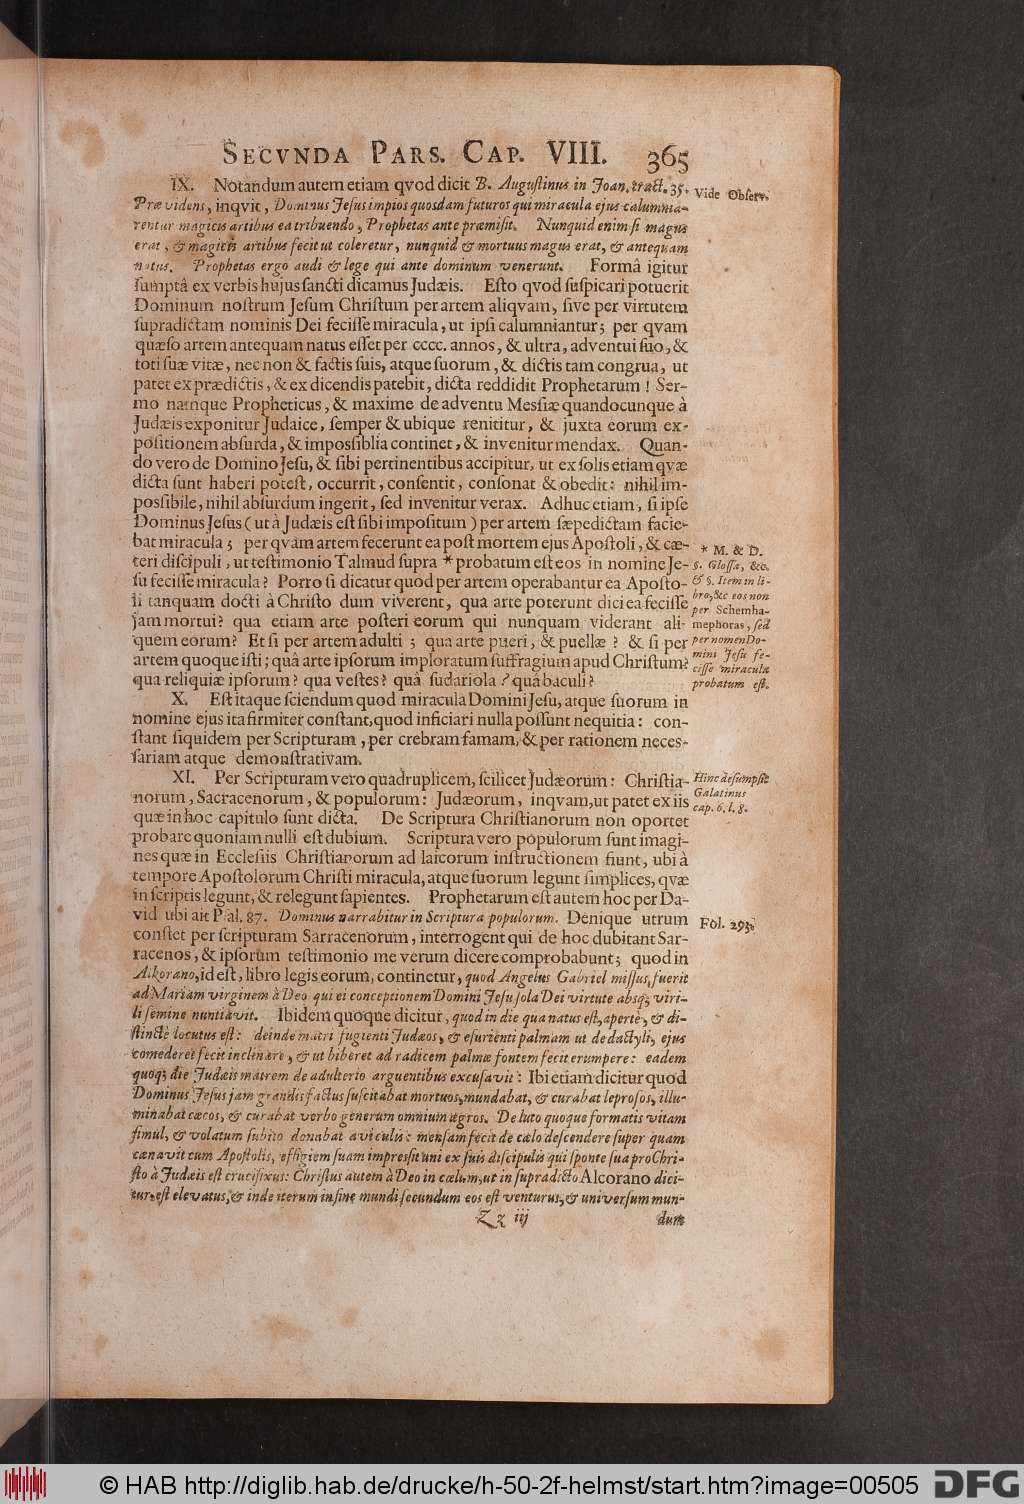 SECVNDA PARS. CAP. VIII. 365
IX. Notandum autem etiam qvod dicit B. Auguſtinus in Joan. tract. 35.
Vide Obſerv.
Prævidens, inqvit, Dominus Jeſus impios quosdam futuros qui miracula ejus calumnia-
rentur magicis artibus ea tribuendo, Prophetas ante præmiſit. Nunquid enim ſi magus
erat, & magicis artibus fecit ut coleretur, nunquid & mortuus magus erat, & antequam
natus. Prophetas ergo audi & lege qui ante dominum venerunt. Formâ igitur
ſumptâ ex verbis hujus ſancti dicamus Judæis. Eſto qvod ſuſpicari potuerit
Dominum noſtrum Jeſum Chriſtum per artem aliqvam, ſive per virtutem
ſupradictam nominis Dei feciſſe miracula, ut ipſi calumniantur; per qvam
quæſo artem antequam natus eſſet per cccc. annos, & ultra, adventui ſuo, &
toti ſuæ vitæ, nec non & factis ſuis, atque ſuorum, & dictis tam congrua, ut
patet ex prædictis, & ex dicendis patebit, dicta reddidit Prophetarum! Ser-
mo namque Propheticus, & maxime de adventu Meſſiæ quandocunque à
Judæis exponitur Judaice, ſemper & ubique renititur, & juxta eorum ex-
poſitionem abſurda, & impoſſiblia continet, & invenitur mendax. Quan-
do vero de Domino Jeſu, & ſibi pertinentibus accipitur, ut ex ſolis etiam qvæ
dicta ſunt haberi poteſt, occurrit, conſentit, conſonat & obedit: nihil im-
poſſibile, nihil abſurdum ingerit, ſed invenitur verax. Adhuc etiam, ſi ipſe
Dominus Jeſus (ut à Judæis eſt ſibi impoſitum) per artem ſæpedictam facie-
bat miracula; per qvam artem fecerunt ea poſt mortem ejus Apoſtoli, & cæ-
teri diſcipuli, ut teſtimonio Talmud ſupra * probatum eſt eos in nomine Je-
ſu feciſſe miracula? Porro ſi dicatur quod per artem operabantur ea Apoſto-
li tanquam docti à Chriſto dum viverent, qua arte poterunt dici ea feciſſe
jam mortui? qua etiam arte poſteri eorum qui nunquam viderant ali-
quem eorum? Et ſi per artem adulti; qua arte pueri, & puellæ? & ſi per
artem quoque iſti; quâ arte ipſorum imploratum ſuffragium apud Chriſtum?
qua reliquiæ ipſorum? qua veſtes? quâ ſudariola? quâ baculi?
* M. & D.
§. Gloſſa, &c.
& §. Item in li-
bro, &c eos non
per Schemha-
mephoras, ſed
per nomen Do-
mini Jeſu fe-
ciſſe miracula
probatum eſt.
X. Eſt itaque ſciendum quod miracula Domini Jeſu, atque ſuorum in
nomine ejus ita firmiter conſtant, quod inficiari nulla poſſunt nequitia: con-
ſtant ſiquidem per Scripturam, per crebram famam, & per rationem neces-
ſariam atque demonſtrativam.
XI. Per Scripturam vero quadruplicem, ſcilicet Judæorum: Chriſtia-
norum, Sacracenorum, & populorum: Judæorum, inqvam, ut patet ex iis
quæ in hoc capitulo ſunt dicta. De Scriptura Chriſtianorum non oportet
Hinc deſumpſit
Galatinus
cap. 6. l. 8.
probare quoniam nulli eſt dubium. Scriptura vero populorum ſunt imagi-
nes quæ in Eccleſiis Chriſtianorum ad laicorum inſtructionem fiunt, ubi à
tempore Apoſtolorum Chriſti miracula, atque ſuorum legunt ſimplices, qvæ
in ſcriptis legunt, & relegunt ſapientes. Prophetarum eſt autem hoc per Da-
vid ubi ait Pſal. 87. Dominus narrabitur in Scriptura populorum. Denique utrum
Fol. 293.
conſtet per ſcripturam Sarracenorum, interrogent qui de hoc dubitant Sar-
racenos, & ipſorum teſtimonio me verum dicere comprobabunt; quod in
Alkorano, id eſt, libro legis eorum, continetur, quod Angelus Gabriel miſſus, fuerit
ad Mariam virginem à Deo qui ei conceptionem Domini Jeſu ſola Dei virtute absq; viri-
li ſemine nuntiavit. Ibidem quoque dicitur, quod in die qua natus eſt, apertè, & di-
ſtinctè locutus eſt: deinde matri fugienti Judæos, & eſurienti palmam ut de dactyli, ejus
comederet fecit inclinare, & ut biberet ad radicem palmæ fontem fecit erumpere: eadem
quoq; die Judæis matrem de adulterio arguentibus excuſavit: Ibi etiam dicitur quod
Dominus Jeſus jam grandis factus ſuſcitabat mortuos, mundabat, & curabat leproſos, illu-
minabat cæcos, & curabat verbo generum omnium ægros. De luto quoque formatis vitam
ſimul, & volatum ſubito donabat aviculis: menſam fecit de cælo deſcendere ſuper quam
cænavit cum Apoſtolis, effigiem ſuam impreſſit uni ex ſuis diſcipulis qui ſponte ſua pro Chri-
ſto à Judæis eſt crucifixus: Chriſtus autem à Deo in cælum, ut in ſupradicto Alcorano dici-
tur, eſt elevatus, & inde iterum in fine mundi ſecundum eos eſt venturus, & univerſum mun-
Zz iij
dum
© HAB http://diglib.hab.de/drucke/h-50-2f-helmst/start.htm?image=00505
DFG